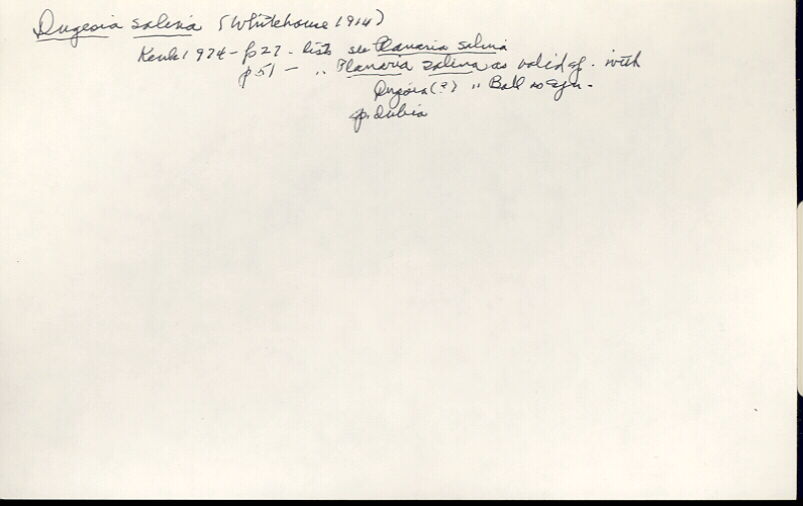 Dugesia salina (Whitehouse 1914)
Kenk 1974 - p27 - lists see Planaria salina
p51 - " Planaria salina as valid sp. with
Dugesia (?) " Ball as syn.
sp. dubia